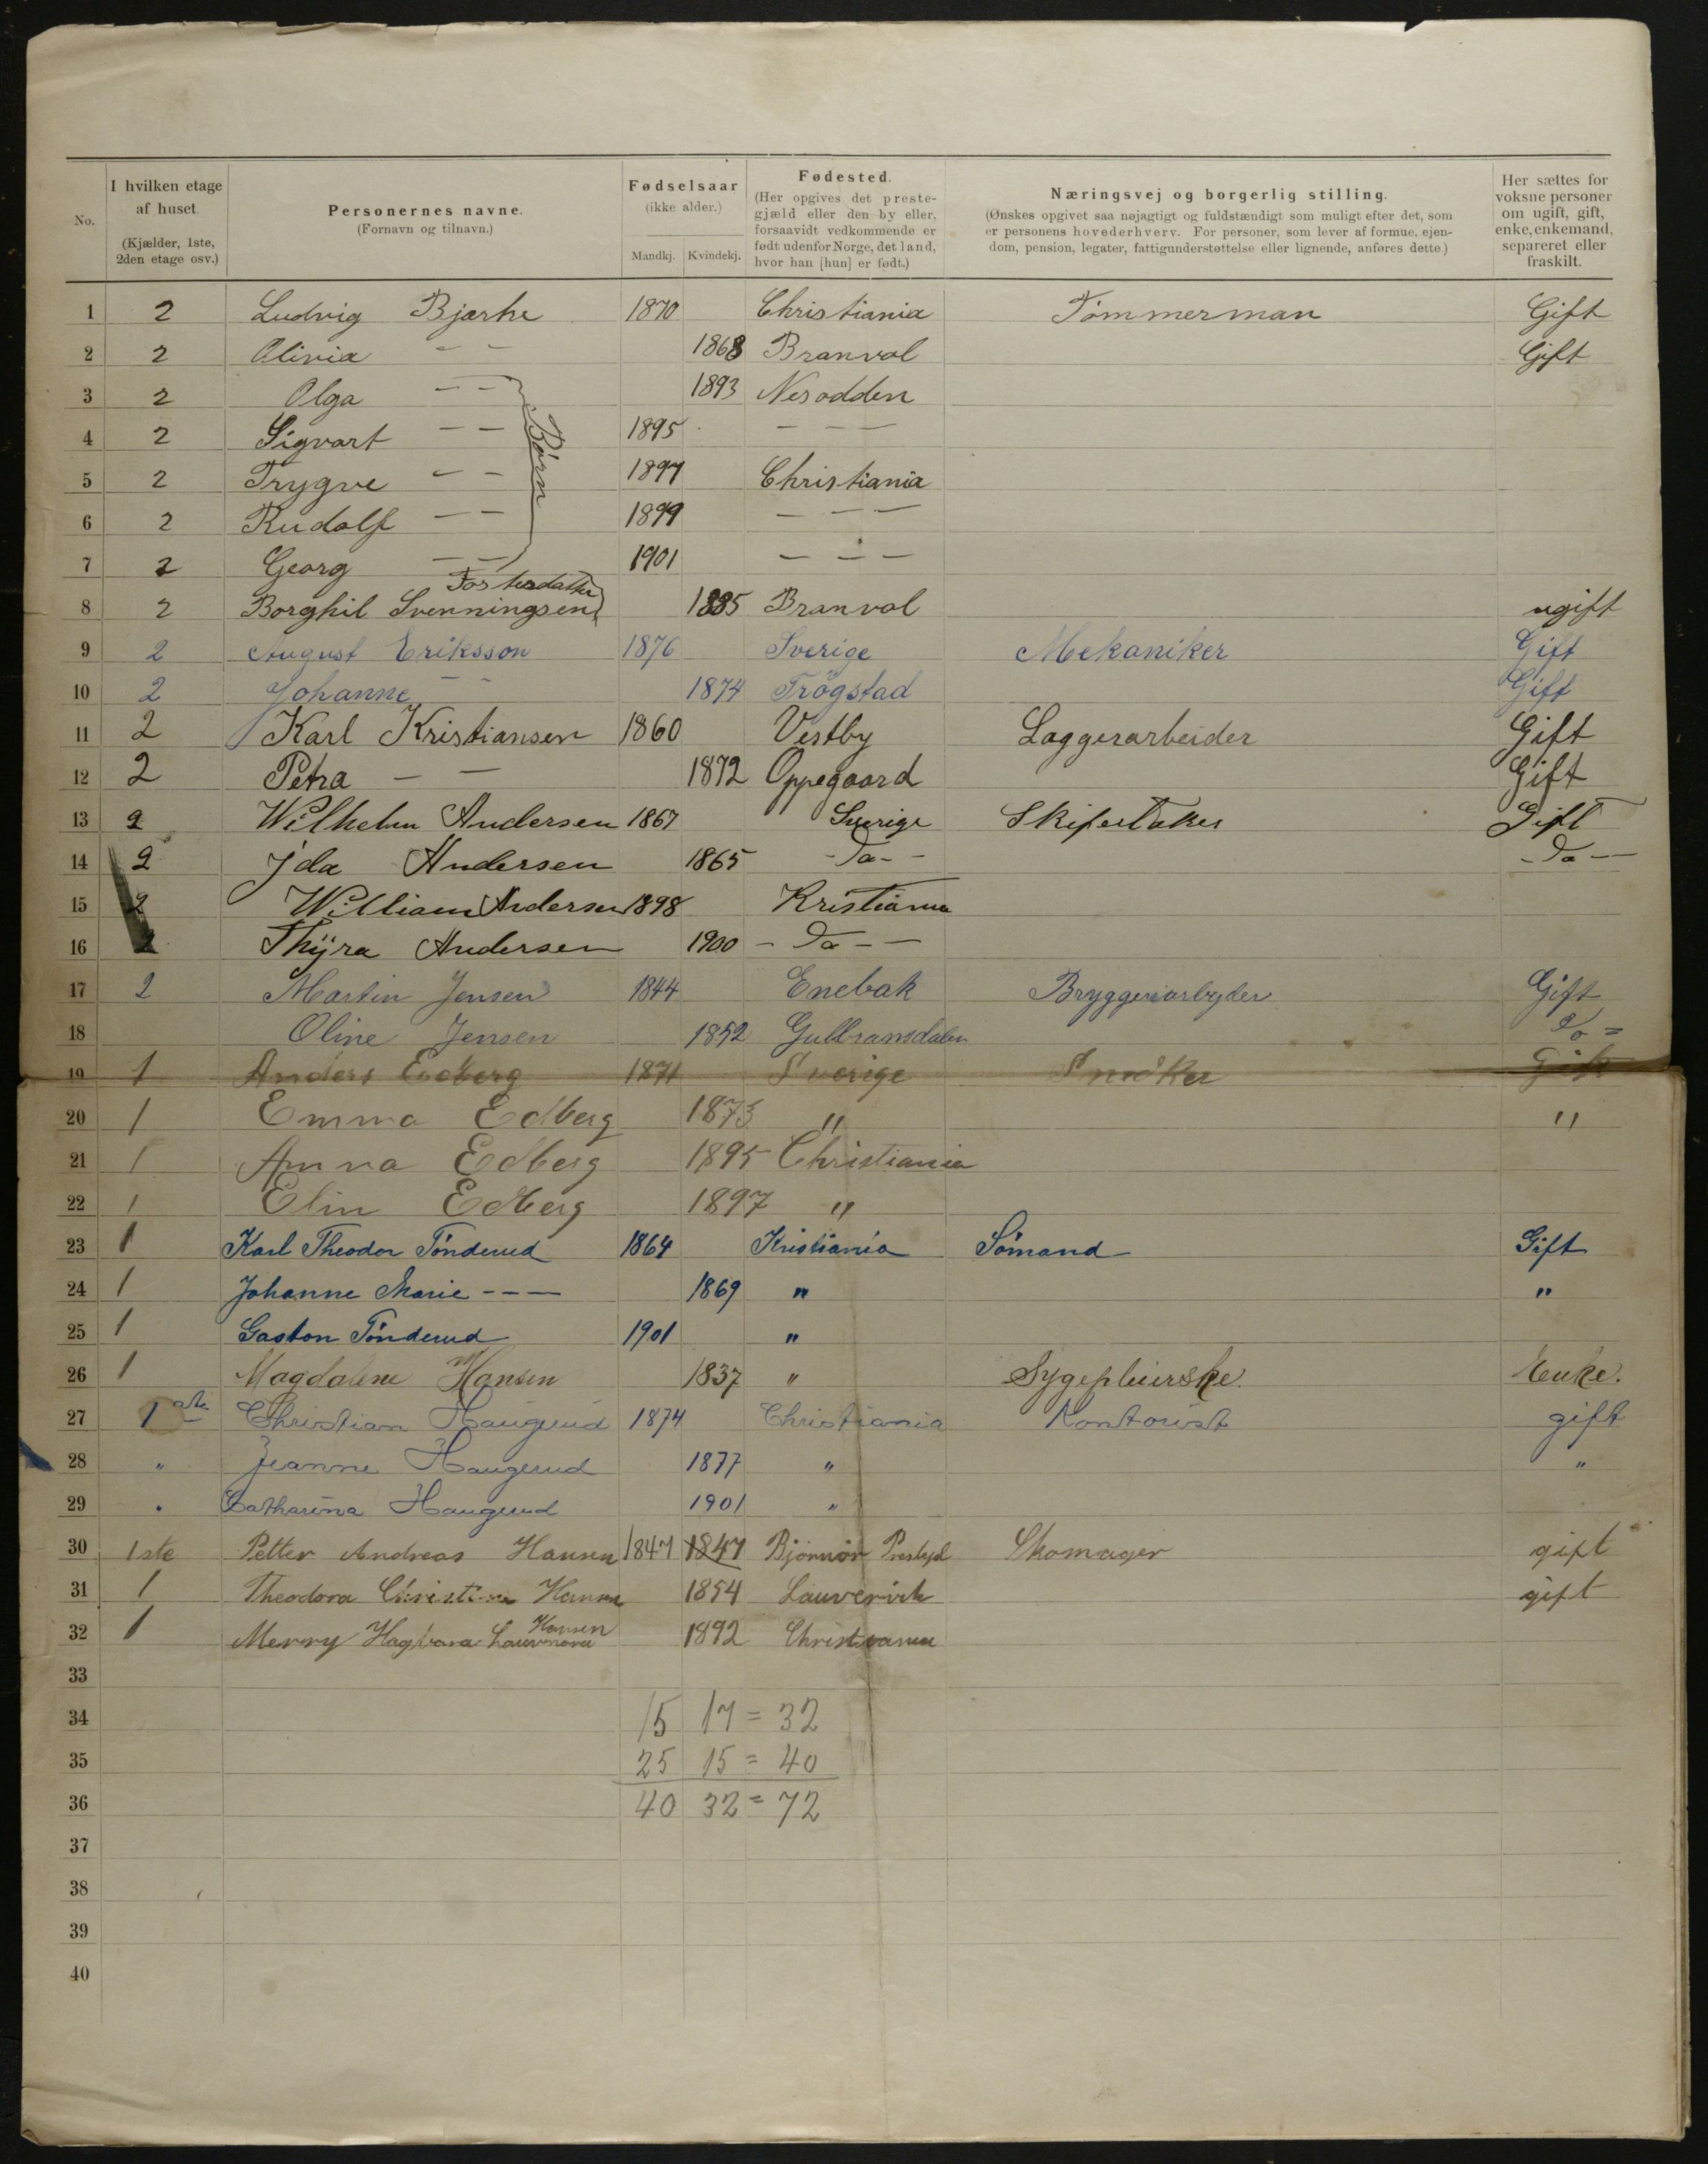 No.
I hvilken etage af huset.
(Kjælder, 1ste, 2den etage osv.)
Personernes navne.
(Fornavn og tilnavn.)
Fødselsaar
(ikke alder.)
Mandkj. Kvindekj.
Fødested.
(Her opgives det prestegjæld eller den by eller, forsaavidt vedkommende er født udenfor Norge, det land, hvor han [hun] er født.)
Næringsvej og borgerlig stilling.
(Ønskes opgivet saa nøjagtigt og fuldstændigt som muligt efter det, som er personens hovederhverv. For personer, som lever af formue, ejendom, pension, legater, fattigunderstøttelse eller lignende, anføres dette.)
Her sættes for voksne personer om ugift, gift, enke, enkemand, separeret eller fraskilt.
1 2 Ludvig Bjerke 1870 Christiania Tømmerman Gift
2 2 Olivia - - 1868 Branvol Gift
3 2 Olga - - 1893 Nesodden
4 2 Sigvart - - 1895 - - -
Børn
5 2 Trygve - - 1897 Christiania
6 2 Rudolf - - 1899 - - -
7 2 Georg - - 1901 - - -
Fosterdatter
8 2 Borghil Svenningsen 1885 Branvol ugift
9 2 August Eriksson 1876 Sverige Mekaniker Gift
10 2 Johanne - - 1874 Trøgstad Gift
11 2 Karl Kristiansen 1860 Vestby Laggerarbeider Gift
12 2 Petra - - 1872 Oppegaard Gift
13 2 Wilhelm Andersen 1867 Sverige Skifertaker Gift
14 2 Ida Andersen 1865 - Do - - - Do -
15 2 William Andersen 1898 Kristiania
16 2 Thyra Andersen 1900 - Do - -
17 2 Martin Jensen 1844 Enebak Bryggeriarbejder Gift
18 Oline Jensen 1852 Gulbransdalen Do =
19 1 Anders Edberg 1871 Sverige Snedker Gift
20 1 Emma Edberg 1873 " "
21 1 Anna Edberg 1895 Christiania
22 1 Elin Edberg 1897 "
23 1 Karl Theodor Tønderud 1864 Kristiania Sømand Gift
24 1 Johanne Marie - - - 1869 " "
25 1 Gaston Tønderud 1901 "
26 1 Magdalene Hansen 1837 " Sygepleierske. Enke.
27 1ste Christian Haugerud 1874 Christiania Kontorist gift
28 " Jeanne Haugerud 1877 " "
29 " Catharina Haugerud 1901 "
30 1ste Petter Andreas Hansen 1847 1847 Bjørnør Prestgd Skomager gift
31 1 Theodora Christine Hansen 1854 Lauvervik gift
Hansen
32 1 Merry Hagbara 1892 Christiania
33
34 15 17 = 32
35 25 15 = 40
36 40 32 = 72
37
38
39
40